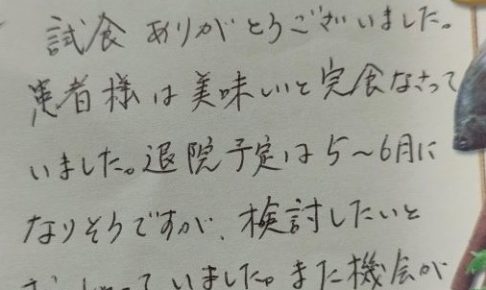 試食ありがとうございました。
患者様は美味しいと完食なさって
いました。退院予定は5～6月に
なりそうですが、検討したいと
おっしゃっていました。また機会が